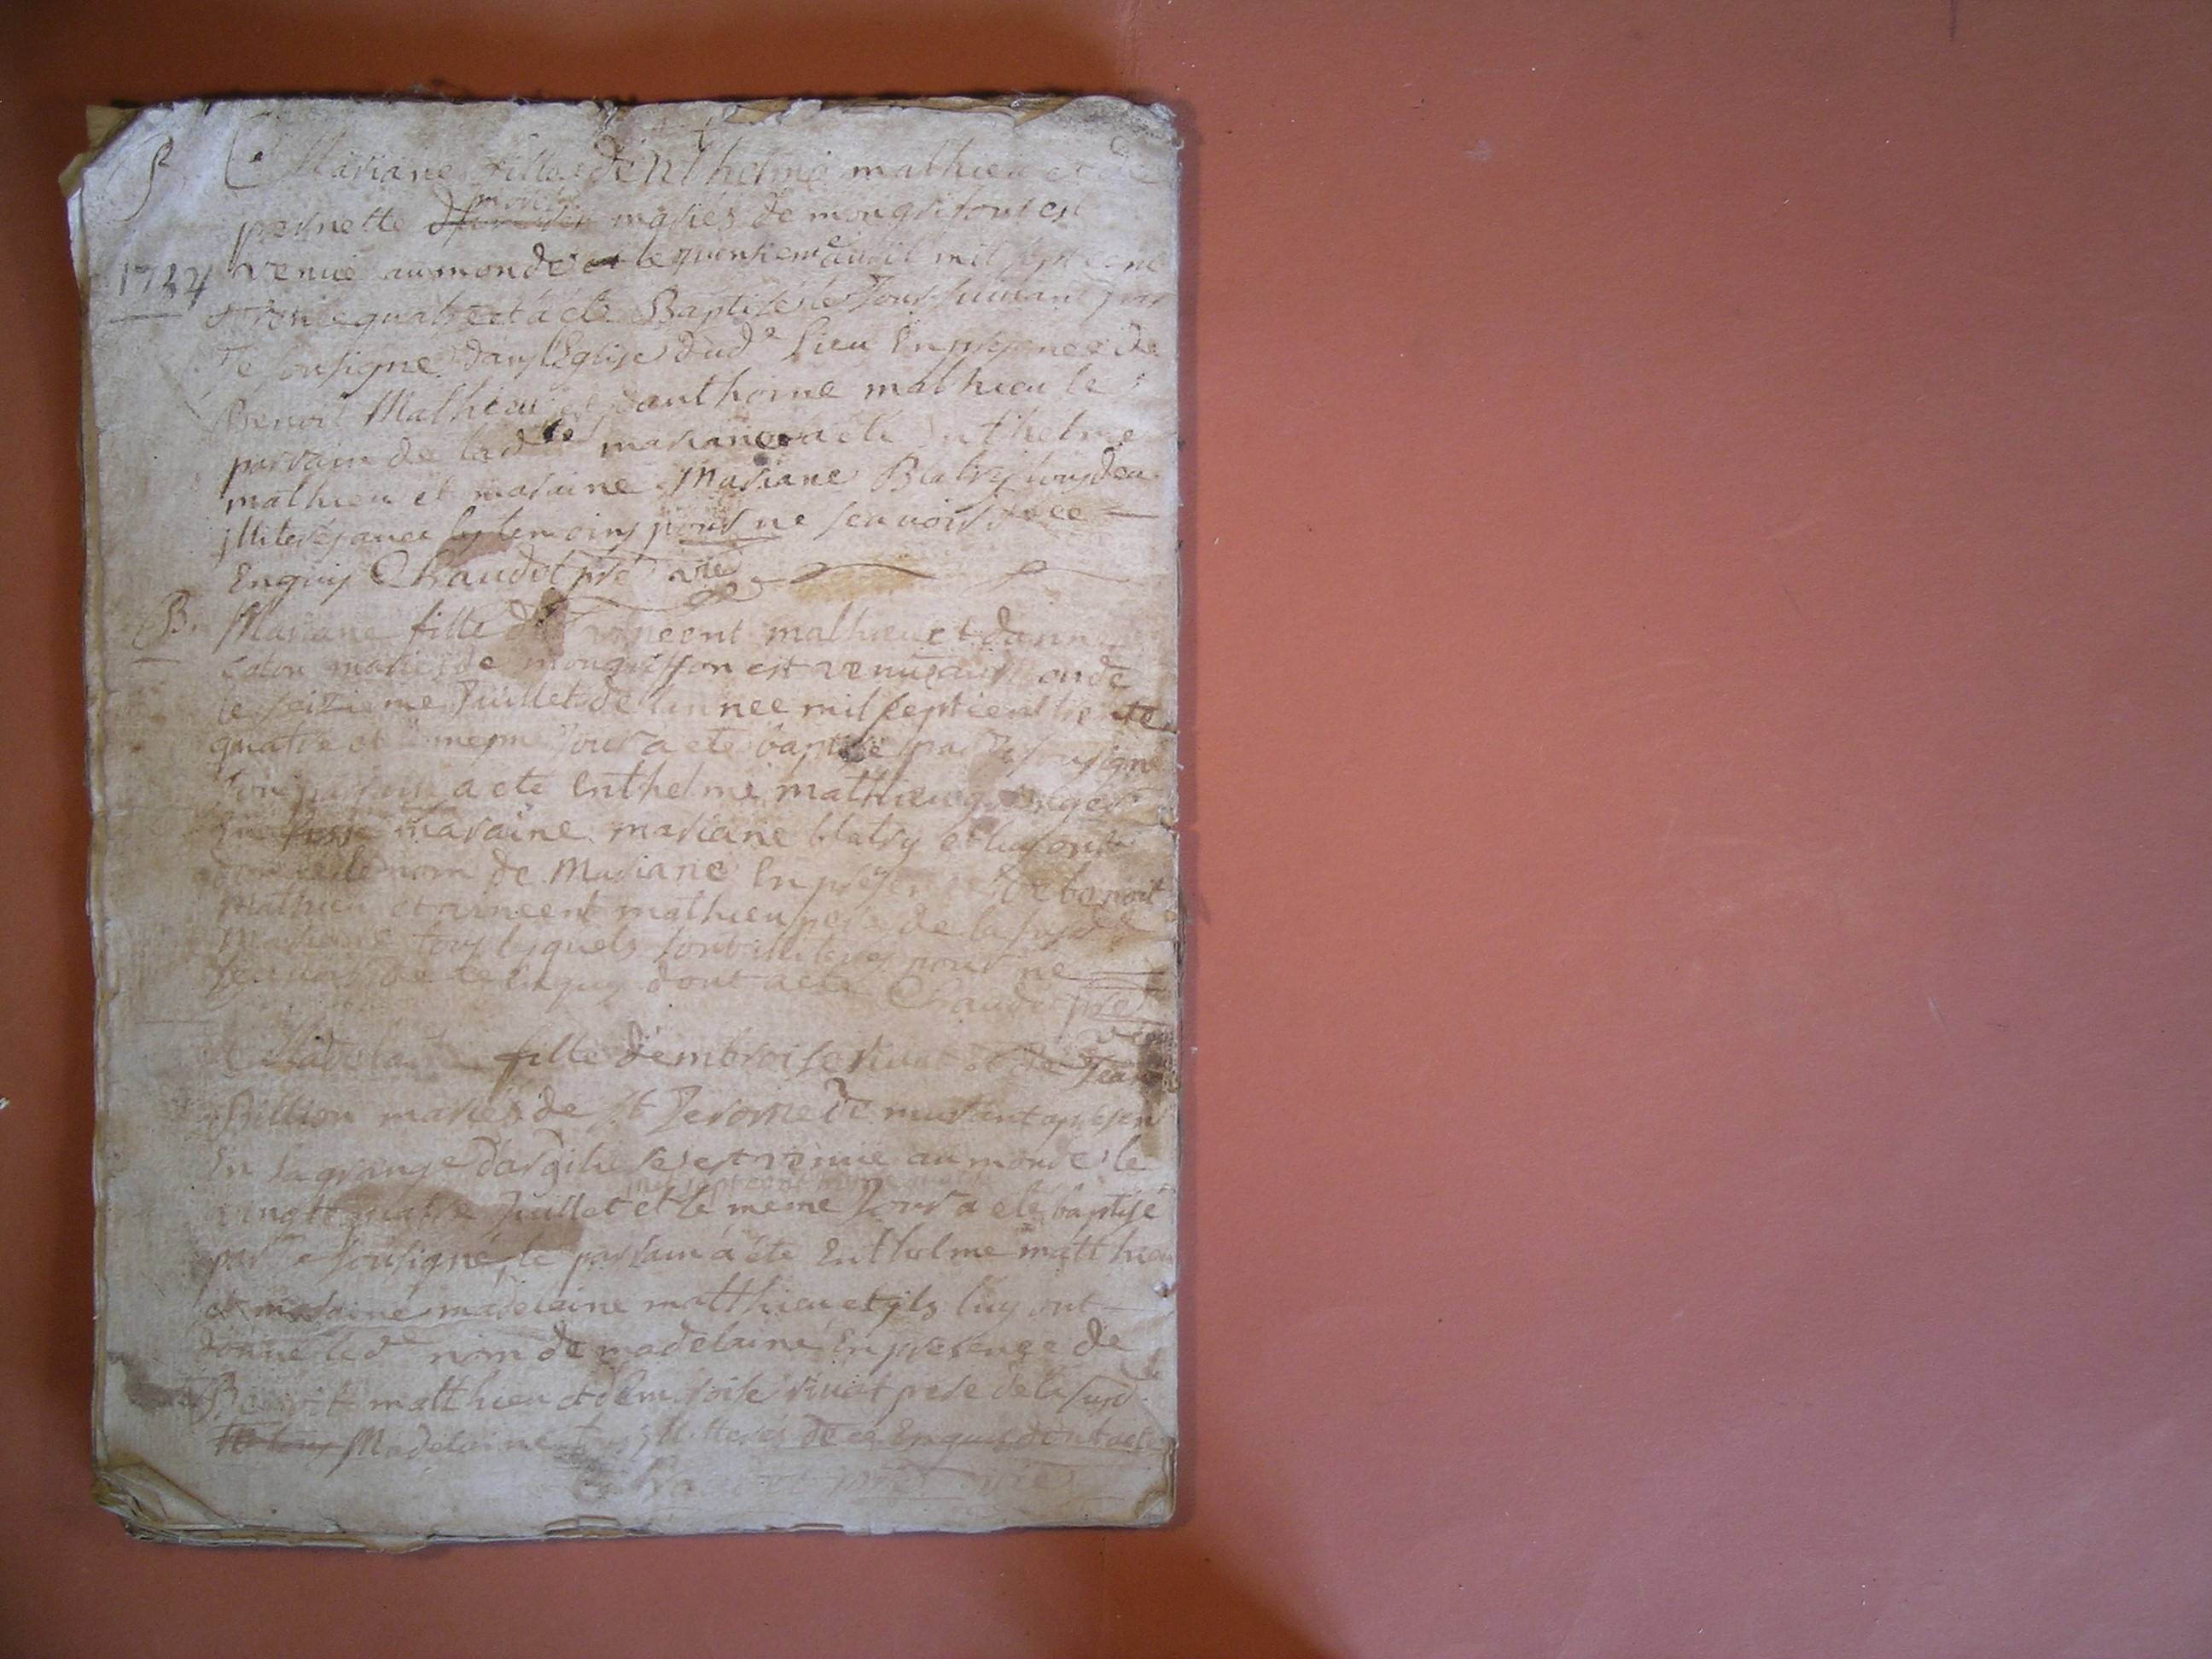 B. Mariane fille d'enthelme mathieu et de
pernette maries de mongrifont est
1734 venue au monde le quensieme avril mil sept cent
trente quatre et a ete Baptisé le Jour suivant par
Je sousigne dans l'Eglise dud^e lieu En presence de
Benoit Mathieu et danthoine mathieu le
parrain de lad^te mariane a ete Enthelme
mathieu et maraine Mariane Blatry tous deux
jlliteréz avec les temoins pour ne scavoir de ce
Enquis Chaudet pre vic
B. Mariane fille de vincent mathieu et danne
maries de mongriffon est venue au Monde
le seizieme Juillet de lannee mil sept cent trente
quatre et le meme Jour a ete baptisé par Je sousigne
son parrain a ete Enthelme mathieu
maraine mariane blatry et luy ont
donne le nom de Mariane En presence de benoit
Mathieu et vincent mathieu pere de la susd^e
Mariane tous lesquels sont illiteres pour ne
scavoir de ce enquis dont acte Chaudet pre
vic
Madelaine fille d'embroise rivat et de Jeane
Billion maries de St Jerome de present
En la grange est venue au monde le
mil sept cent trente quatre
vingt quatre Juillet et le meme Jour a ete baptisé
par Je sousigné, le parrain a éte Enthelme matthieu
et maraine madelaine matthieu et jls luy ont
donne led^e nom de madelaine En presence de
Benoit matthieu et d'embroise rivat pere de la susd^e
Madelaine tous jllitterés de ce Enquis dont acte
Chaudet pre vic